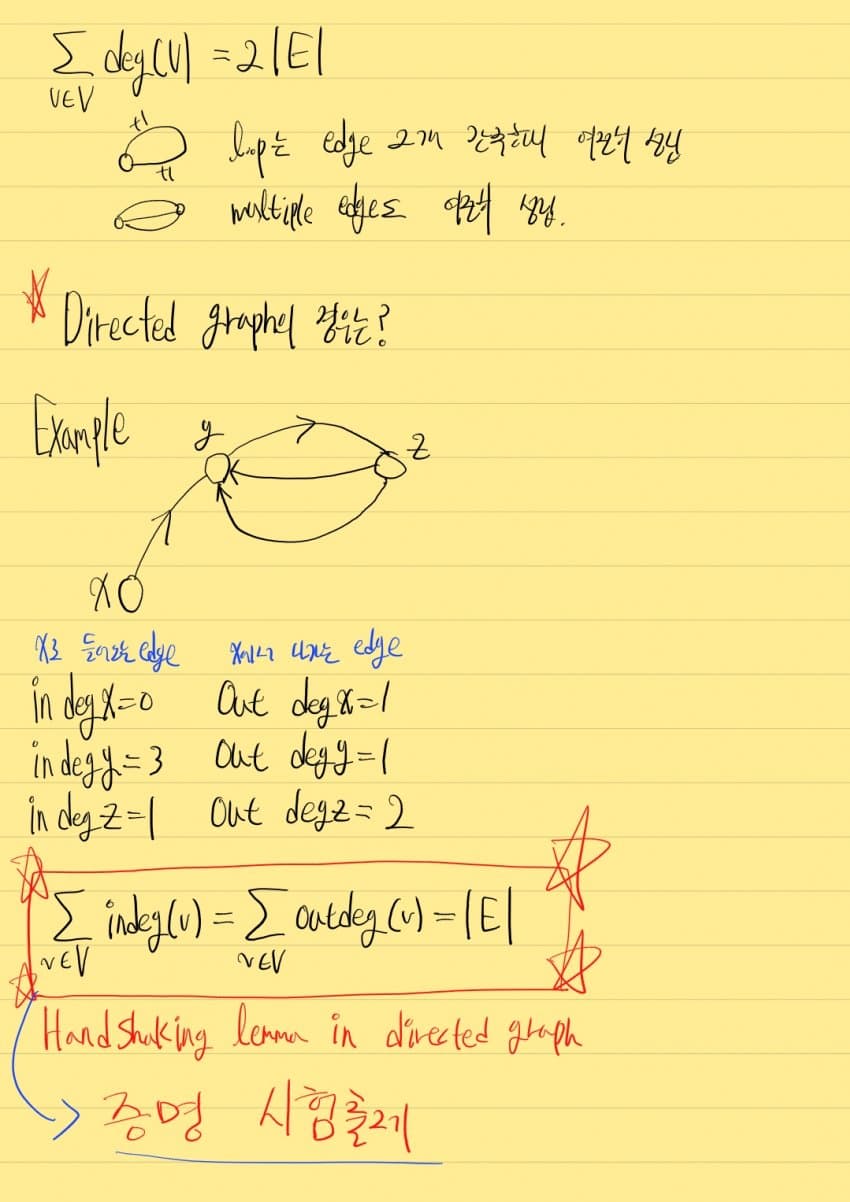 ∑ deg(v) = 2|E|
v∈V
+1
loop는 edge 2개 간주해서 여전히 성립
+1
multiple edges도 여전히 성립.
Directed graph의 경우는?
Example
y
z
x
x로 들어오는 edge x에서 나가는 edge
in deg x=0 Out deg x=1
in deg y=3 Out deg y=1
in deg z=1 Out deg z=2
∑ indeg(v) = ∑ outdeg(v) = |E|
v∈V v∈V
Handshaking lemma in directed graph
증명 시험출제